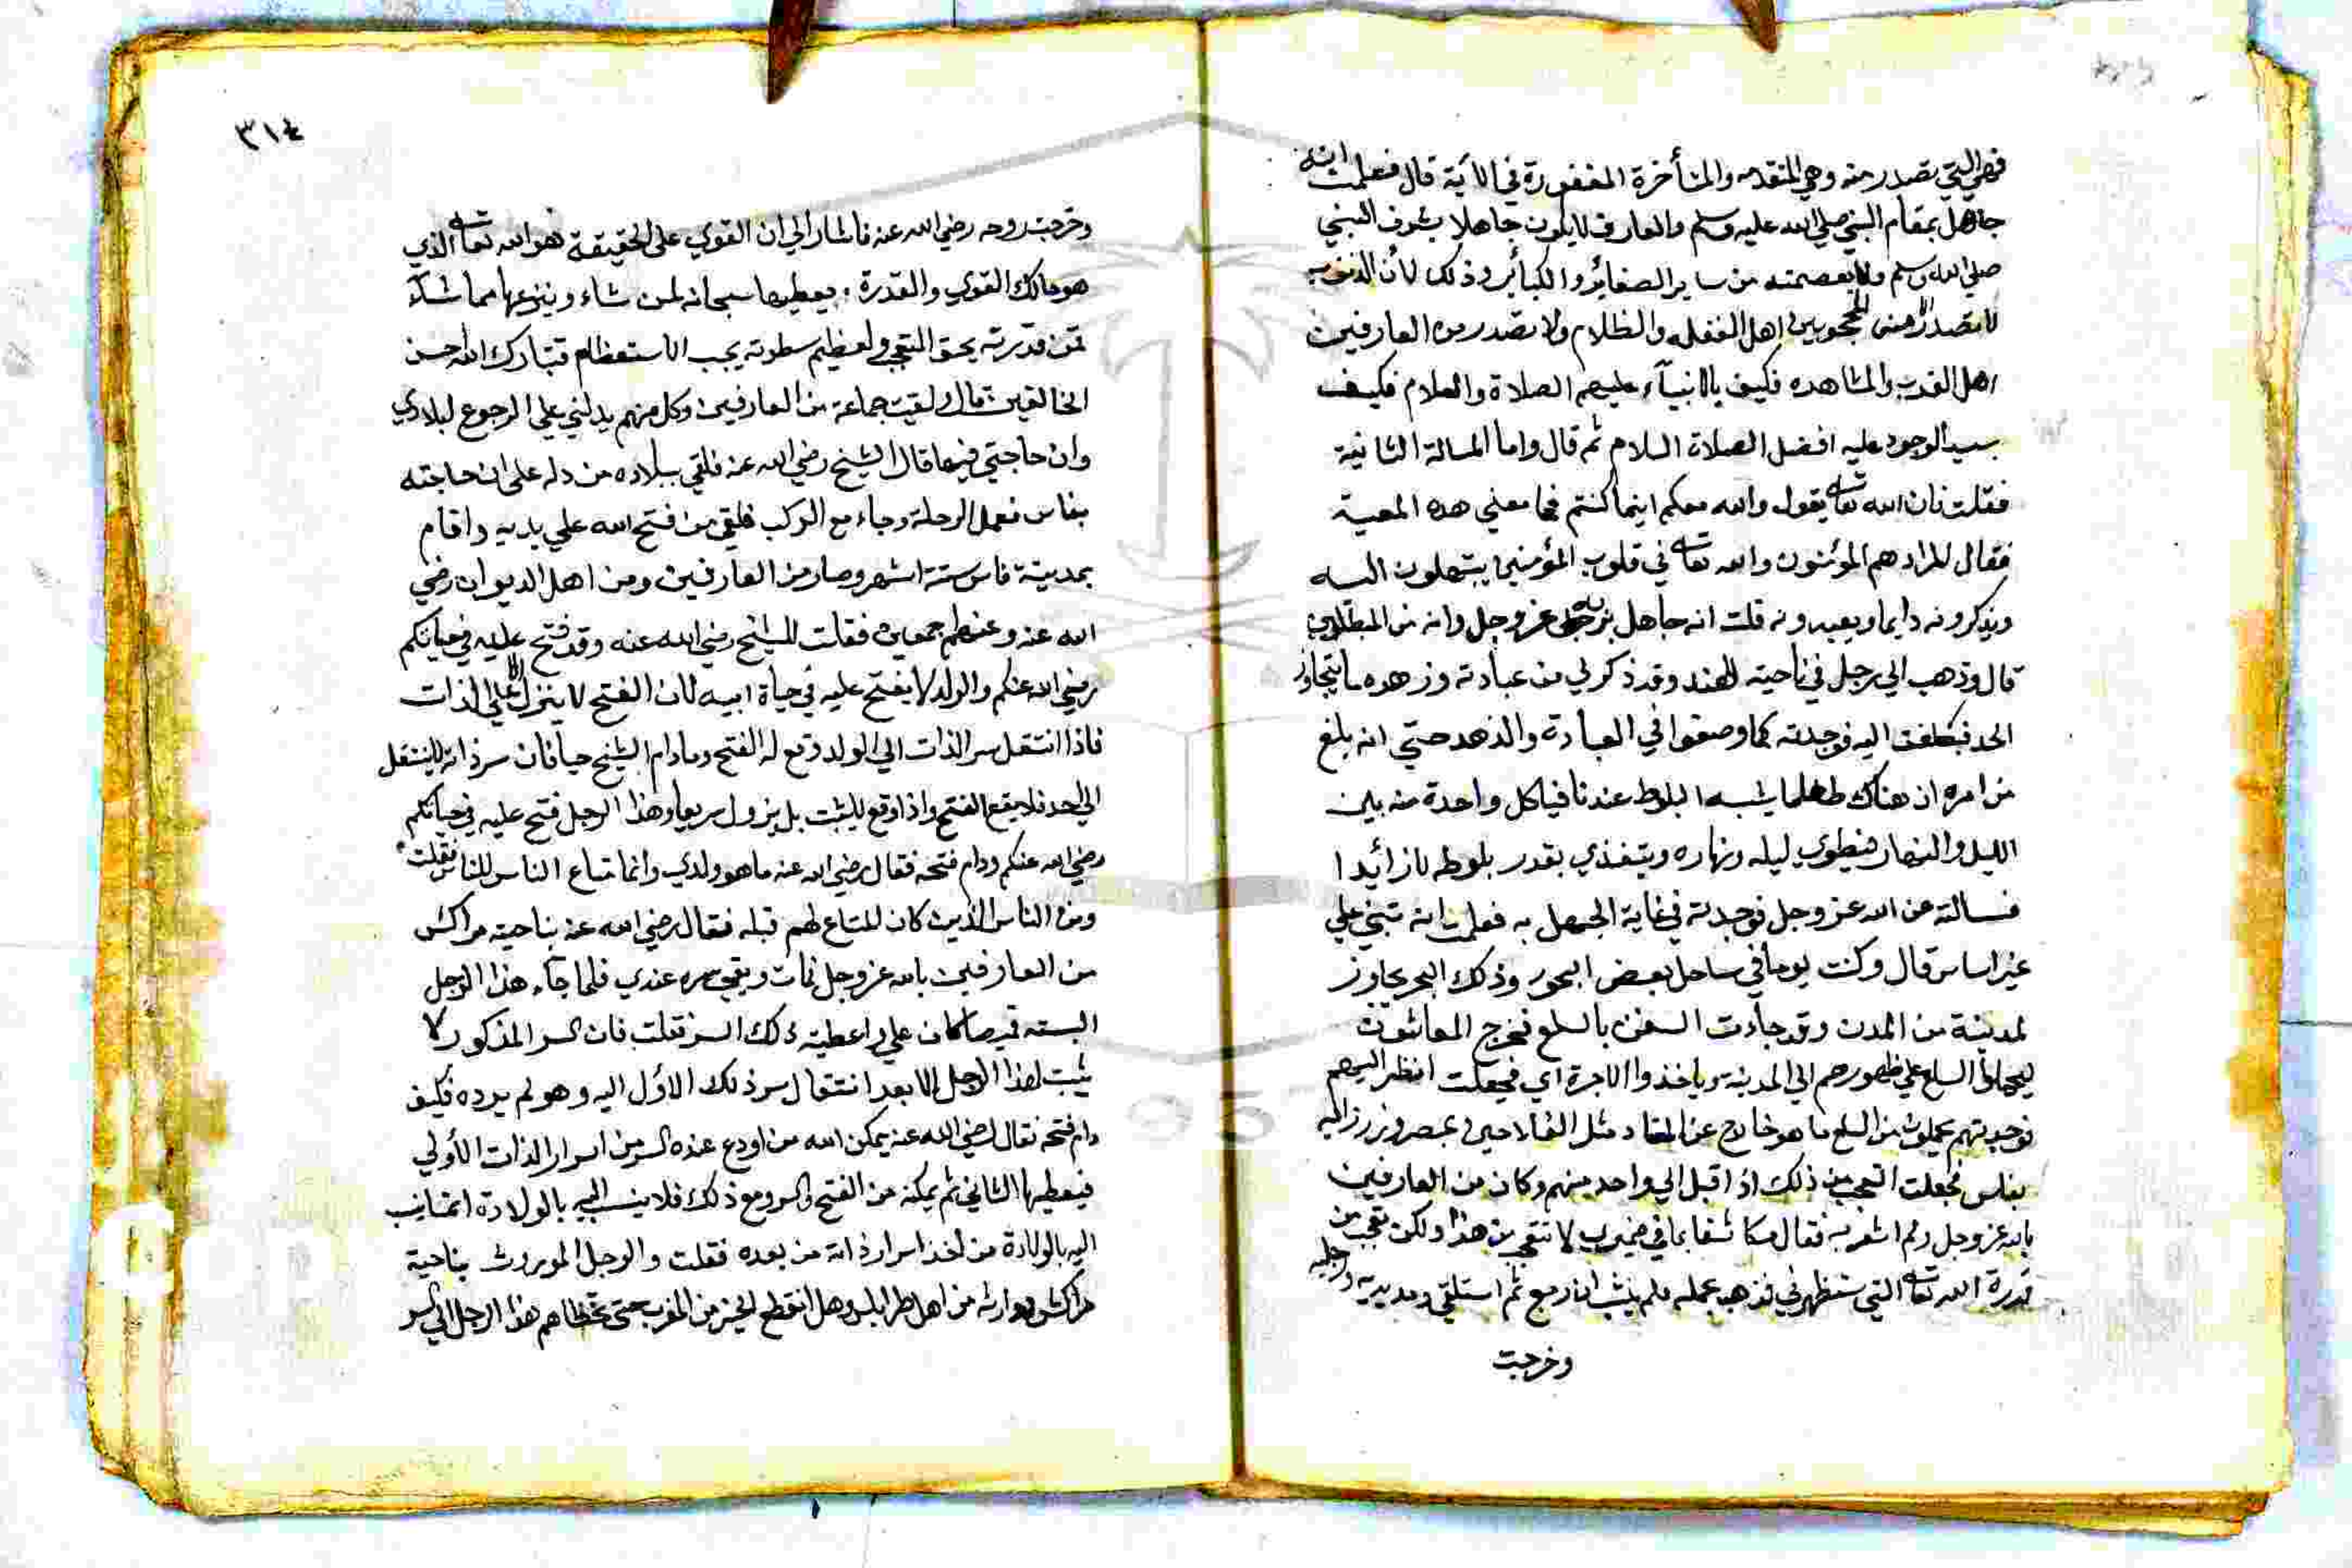 فهي التي تصدر منه وهي المتقدمه والمتأخرة المغفورة في الآية قال فعلمت انه
جاهل بمقام النبي صلي الله عليه وسلم والعارف لا يكون جاهلا بشوف النبي
صلي الله وسلم ولا بعصمته من ساير الصغائر والكبائر وذلك لأن الذنوب
لا تصدر الا من المحجوبين اهل الغفله والظلام ولا تصدر من العارفين
اهل القرب والمشاهده فكيف بالانبيآء عليهم الصلاة والسلام فكيف
سيد الوجود عليه افضل الصلاة السلام ثم قال واما المسالة الثانية
فقلت فان الله تعالى يقول والله معكم اينما كنتم فما معني هذه المعية
فقال المراد هم المؤمنون والله تعالى في قلوب المؤمنين يبتهلون اليه
ويذكرونه دايما ويعبدونه قلت انه جاهل بربه عز وجل وانه من المبطلين
قال وذهب الي رجل في ناحية الهند وقد ذكر لي من عبادته وزهده ما يتجاوز
الحد فتكلفت اليه فوجدته كما وصفوا في العبادة والزهد حتي انه بلغ
من امره ان هناك طعاما يشبه البلوط عندنا فياكل واحدة منه بين
الليل والنهار فيطوي ليله ونهاره ويتغذي بقدر بلوطه لا زائدا
فسالته عن الله عز وجل فوجدته في غاية الجهل به فعلمت انه تبني علي
غير اساس قال وكنت يوما في ساحل بعض البحور وذلك البحر مجاوز
لمدينة من المدن وقد جاءت السفن بالسلع فخرج العاشون
ليحملوا السلع علي ظهورهم الي المدينة وياخذوا الاجرة اي فجعلت انظر اليهم
فوجدتهم يحملون من السلع ما هو خارج عن المعتاد مثل الفلاحين بمصر وزرزاليه
بفاس فجعلت اتعجب من ذلك اذ اقبل الي واحد منهم وكان من العارفين
بالله عز وجل ولم اشعر به فقال مكاشفا بما في ضميري لا تتعجب من هذا ولكن تعجب من
قدرة الله تعالى التي ستظهر في فذهب بحمله فلم يلبث ان رجع ثم استلقي ومد يديه ورجليه
وخرجت
٣١٤
وخرجت روحه رضي الله عنه فاشار الي ان القوي علي الحقيقة هو الله تعالى الذي
هو مالك القوي والقدرة يعطيها سبحانه لمن شاء وينزعها مما شآء
فمن قدرته يحق التعجب ولعظيم سطوته يجب الاستعظام فتبارك الله احسن
الخالقين قال ولقيت جماعة من العارفين وكل منهم يدلني علي الرجوع لبلادي
وان حاجتي فيها قال الشيخ رضي الله عنه فلقي ببلاده من دله علي ان حاجته
بفاس فعمل الرحلة وجاء مع الركب فلقي من فتح الله علي يديه واقام
بمدينة فاس ستة اشهر وصار من العارفين ومن اهل الديوان رضي
الله عنه وعنهم اجمعين فقلت للشيخ رضي الله عنه وقد فتح عليه في حياتكم
رضي الله عنكم والولد لا يفتح عليه في حياة ابيه لان الفتح لا ينزل الا علي الذات
فاذا انتقل سر الذات الي الولد وقع له الفتح وما دام الشيخ حيا فان سر ذاته لا ينتقل
الي احد فلا يقع الفتح واذا وقع لا يثبت بل يزول سريعا وهذا الرجل فتح عليه في حياتكم
رضي الله عنكم ودام فتحه فقال رضي الله عنه ما هو ولدي وانما متاع الناس للناس فقلت
ومن الناس الذين كان المتاع لهم قبله فقال رضي الله عنه بناحية مراكش
من العارفين بالله عز وجل مات وبقي سره عندي فلما جآء هذا الرجل
البسته قميصا كان علي واعطيته ذلك السر فقلت فان السر المذكور لا
يثبت لهذا الرجل الا بعد انتقال سر ذلك الاول اليه وهو لم يرده فكيف
دام فتحه فقال رضي الله عنه يمكن الله من اودع عنده السر من اسرار الذات الاولي
فيعطيها الثاني ثم يمكنه من الفتح والسر ومع ذلك فلا ينسب اليه بالولادة انما ينسب
اليه بالولادة من اخذ اسرار ذاته من بعده فقلت والرجل الموروث بناحية
مراكش ووارثه من اهل طرابلس وهل انقطع الخير من المغرب حتي تخطاهم هذا الرجل الي السر